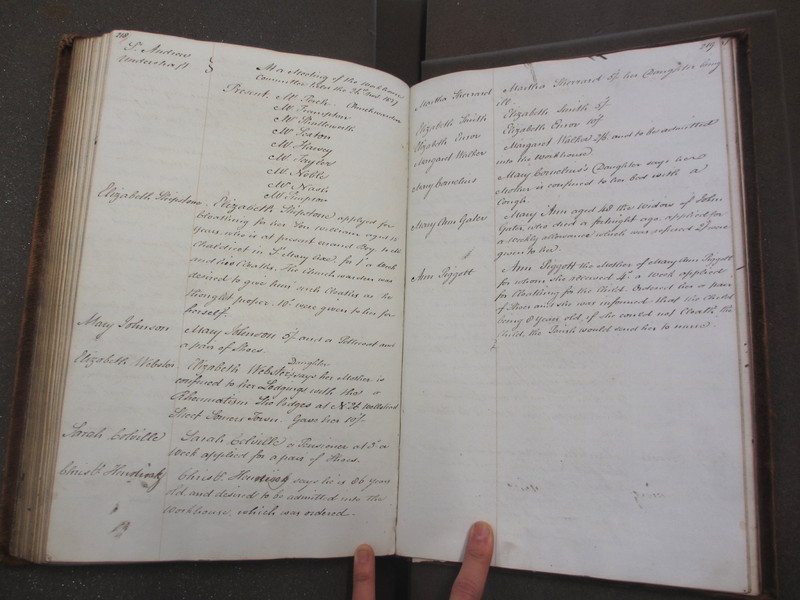 208
St. Andrew
Undershaft
At a Meeting of the Workhouse
Committee held the 24 Nov. 1837
Present Mr. Pack Churchwarden
Mr. Frampton
Mr. Shuttleworth
Mr. Sexton
Mr. Harvey
Mr. Taylor
Mr. Noble
Mr. Nash
Mr. Simpson
Elizabeth Shipstone Elizabeth Shipstone applied for
Cloathing for her Son William aged
Years, who is at present errand Boy with
in St. Mary Axe for 1/ a week
and his Cloaths. The Churchwarden was
desired to give him such Cloaths as he
thought proper. 10/ were given to her for
herself.
Mary Johnson Mary Johnson 5/ and a Petticoat and
a pair of Shoes.
Daughter
Elizabeth Webster Elizabeth Webster's says her Mother is
confined to her Lodgings with the
Rheumatism She lodges at No. 26
Street Somers Town. Gave her 10/
Sarah Colville Sarah Colville a Pensioner at 3/ a
Week applied for a pair of Shoes.
Christr. Christr. says he is 86 years
old and desired to be admitted into the
Workhouse, which was ordered.
209
Martha Sherrard Martha Sherrard 5/ her Daughter being
ill.
Elizabeth Smith Elizabeth Smith 5/
Elizabeth Ensor Elizabeth Ensor 10/
Margaret Walker Margaret Walker 2/6 and to be admitted
into the Workhouse
Mary Mary Daughter says her
Mother is confined to her bed with a
Cough.
Mary Ann Gater Mary Ann aged 48 the Widow of John
Gater, who died a fortnight ago, applied for
a weekly allowance which was refused were
given to her
Ann Piggott Ann Piggott the Mother of Mary Ann Piggott
for whom She received 4/ a week applied
for Cloathing for the Child. Ordered her a pair
of Shoes and she was informed that the Child
being 8 years old, if she could not Cloath the
Child, the Parish would send her to nurse